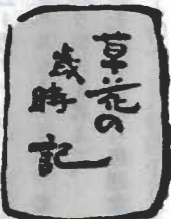 草花の
歳時
記